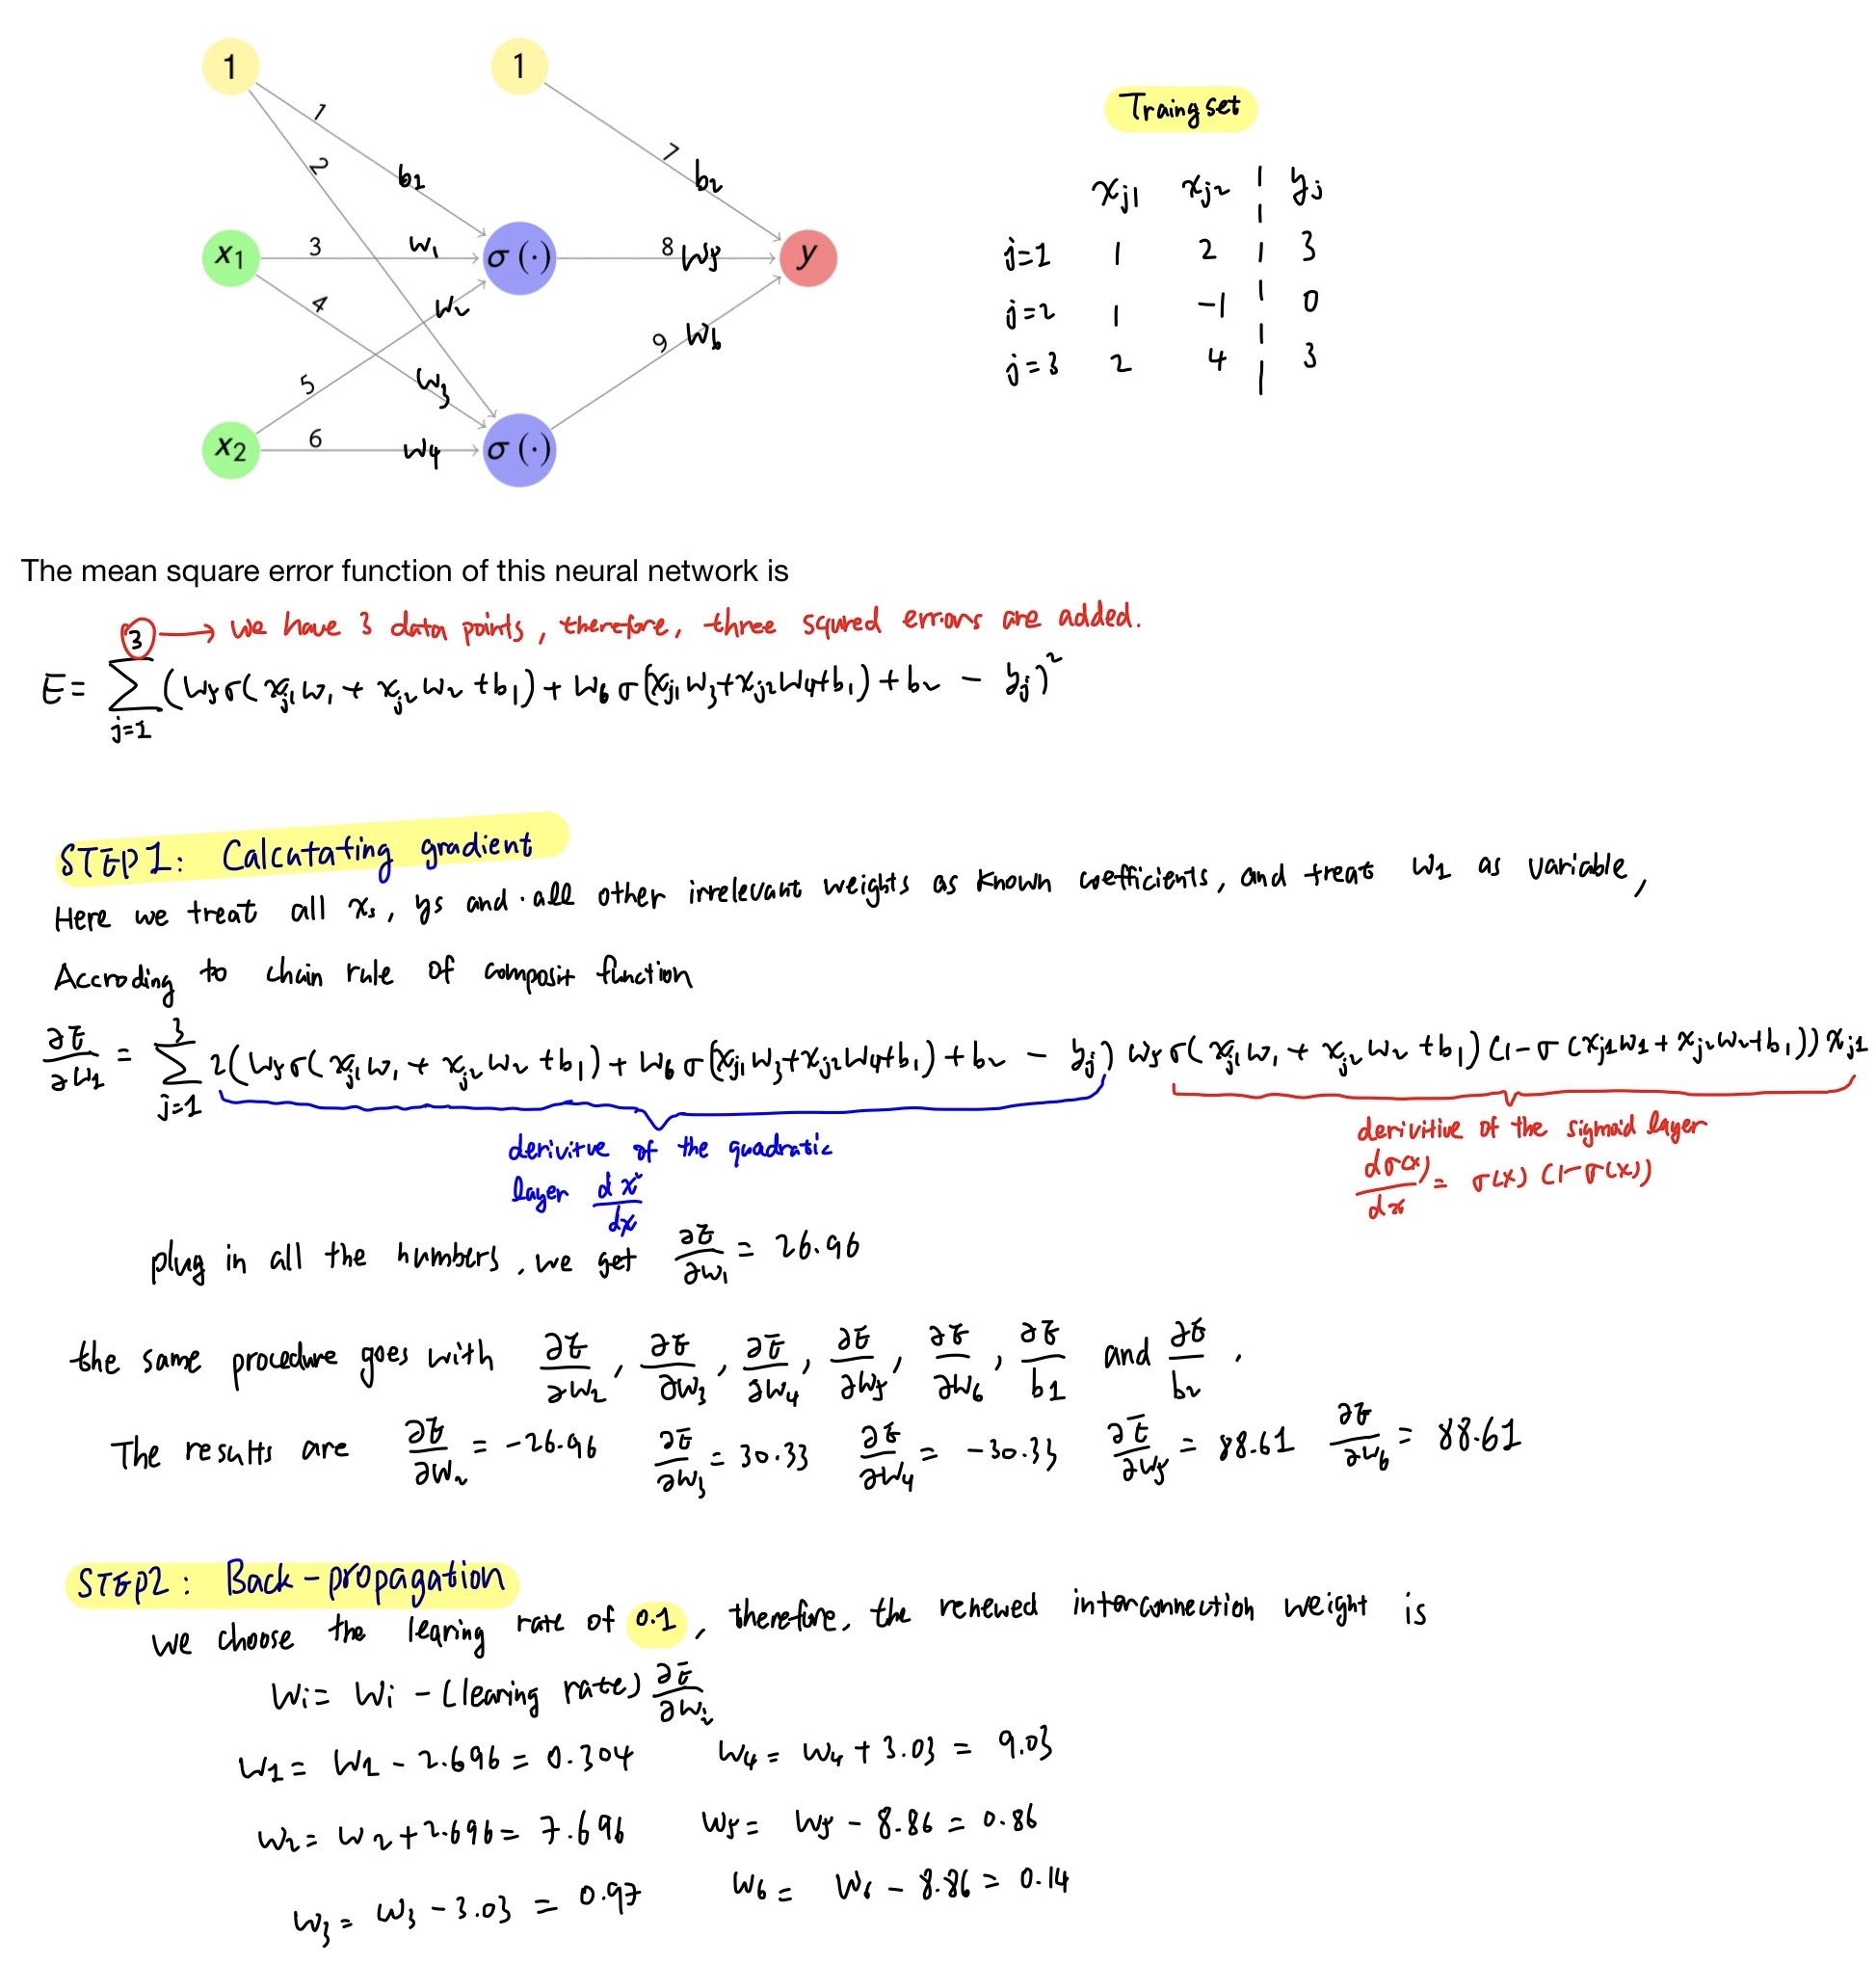 1 1
1
2
b₁
7
b₂
Traing set
xj1 xj2 yj
j=1 1 2 3
j=2 1 -1 0
j=3 2 4 3
x₁ 3 w₁ σ(·) 8 w5 y
4
w₂
9 w6
5
w3
x₂ 6 w4 σ(·)
The mean square error function of this neural network is
3 → we have 3 data points, therefore, three squred errors are added.
E = Σ_{j=1}^{3} (w5σ(xj1w₁ + xj2w₂ + b₁) + w6σ(xj1w3+xj2w4+b₁) + b₂ − yj)²
STEP1: Calcutating gradient
Here we treat all xs, ys and all other irrelevant weights as known coefficients, and treat w1 as variable,
Accroding to chain rule of composit function
∂E/∂w1 = Σ_{j=1}^{3} 2(w5σ(xj1w₁ + xj2w₂ + b₁) + w6σ(xj1w3+xj2w4+b₁) + b₂ − yj) w5σ(xj1w₁ + xj2w₂ + b₁)(1−σ(xj1w1+xj2w2+b₁))xj1
derivitve of the quadratic
layer dx²/dx
derivitive of the sigmoid layer
dσ(x)/dx = σ(x)(1−σ(x))
plug in all the numbers, we get ∂E/∂w₁ = 26.96
the same procedure goes with ∂E/∂w2, ∂E/∂w3, ∂E/∂w4, ∂E/∂w5, ∂E/∂w6, ∂E/b1 and ∂E/b2.
The results are ∂E/∂w2 = -26.96 ∂E/∂w3 = 30.33 ∂E/∂w4 = -30.33 ∂E/∂w5 = 88.61 ∂E/∂w6 = 88.61
STEP2: Back-propagation
we choose the learing rate of 0.1, therefore, the renewed interconnection weight is
Wi = Wi − (learing rate) ∂E/∂wi
W1 = W1 − 2.696 = 0.304 W4 = W4 + 3.03 = 9.03
W2 = W2 + 2.696 = 7.696 W5 = W5 − 8.86 = 0.86
W3 = W3 − 3.03 = 0.97 W6 = W6 − 8.86 = 0.14